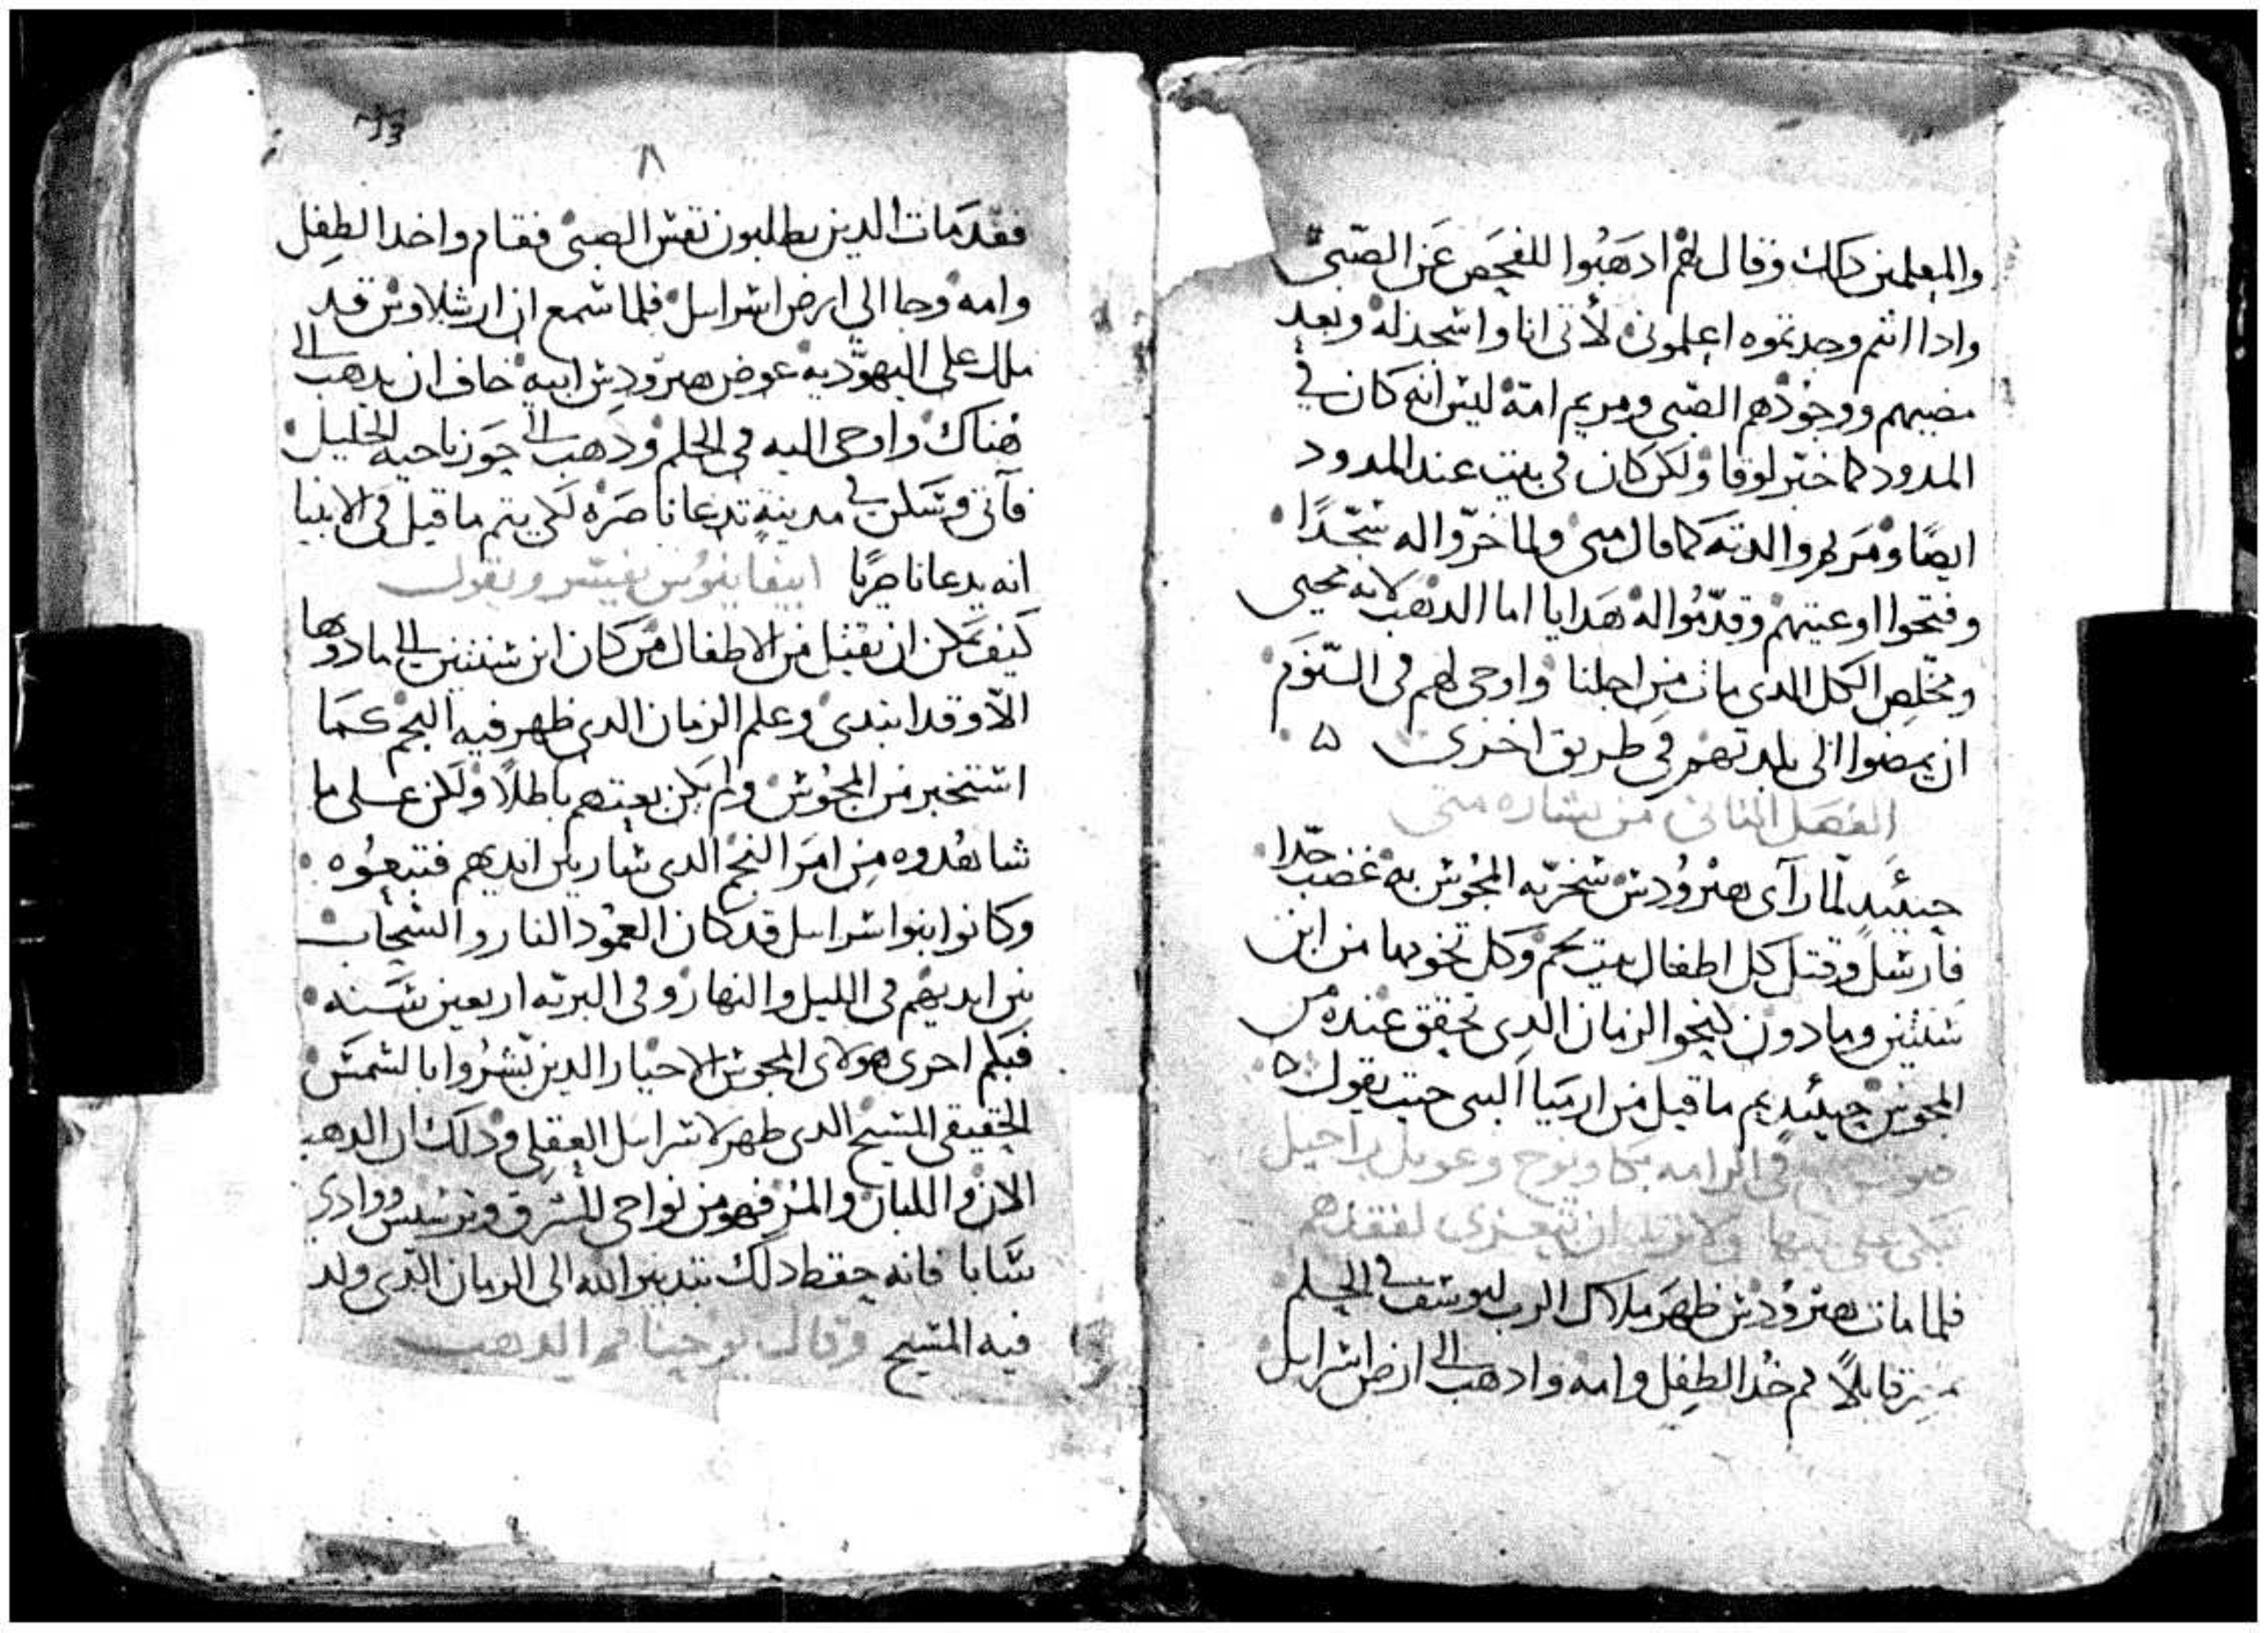 والمعلمين دلك وقال لهم ادهبوا للفحص عن الصبي
وادا انتم وجدتموه اعلموني لأتي انا واسجد له وبعد
مضيهم ووجودهم الصبي ومريم امه ليس انه كان في
المدود كما خبر لوقا ولكن كان في بيت عند المدود
ايضا ومريم والدته كما قال متى ولما خروا له سجدا
وفتحوا اوعيتهم وقدموا له هدايا اما الدهب لانه محيي
ومخلص الكل الدى مات من اجلنا واوحى لهم في النوم
ان يمضوا الى بلدتهم في طريق اخرى ه
الفصل الثاني من بشاره متى
حينئيد لما رآى هيرودس سخرية المجوس به غضب جدا
فأرسل وقتل كل اطفال بيت لحم وكل تخومها من ابن
سنتين وما دون كنحو الزمان الدي تحقق عنده من
المجوس حينئيد تم ما قيل من ارميا النبي حيث يقول ه
صوت في الرامه بكا ونوح وعويل راحيل
تبكي على بنيها ولا تريد ان تتعزى لفقدهم
فلما مات هيرودس ظهر ملاك الرب ليوسف في الحلم
بمصر قايلا قم خد الطفل وامه وادهب الى ارض اسرايل
٨
فقد مات الدين يطلبون نفس الصبي فقام واخد الطفل
وامه وجا الي ارض اسرايل فلما سمع ان ارشلاوس قد
ملك على اليهودية عوض هيرودس ابيه خاف ان يدهب الى
هناك واوحى اليه في الحلم ودهب الى جوز ناحيه الجليل
فأتى وسكن في مدينة تدعا ناصره لكي يتم ما قيل في الانبيا
انه يدعا ناصريا ابيفانيوس يفسر ويقول
كيف يمكن ان يقتل من الاطفال من كان ابن سنتين الى ما دونها
الا وقد ابتدى وعلم الزمان الدي ظهر فيه النجم كما
استخبر من المجوس ولم يكن بعيهم باطلا ولكن على ما
شاهدوه من امر النجم الدى سار بين ايديهم فتبعوه
وكانوا بنوا اسرايل قد كان العمود النار والسحاب
بين ايديهم في الليل والنهار وفى البريه اربعين سنه
فبكم احرى هولاى المجوس الاخيار الدين بشروا بالشمس
الحقيقي المسيح الدى ظهر لاسرايل العقلي ودلك ان الدهب
الان واللبان والمر فهو من نواحى المشرق وترسيس ووادي
سابا فانه حفظ دلك بتدبير الله الى الزمان الدى ولد
فيه المسيح وقال يوحنا فم الدهب